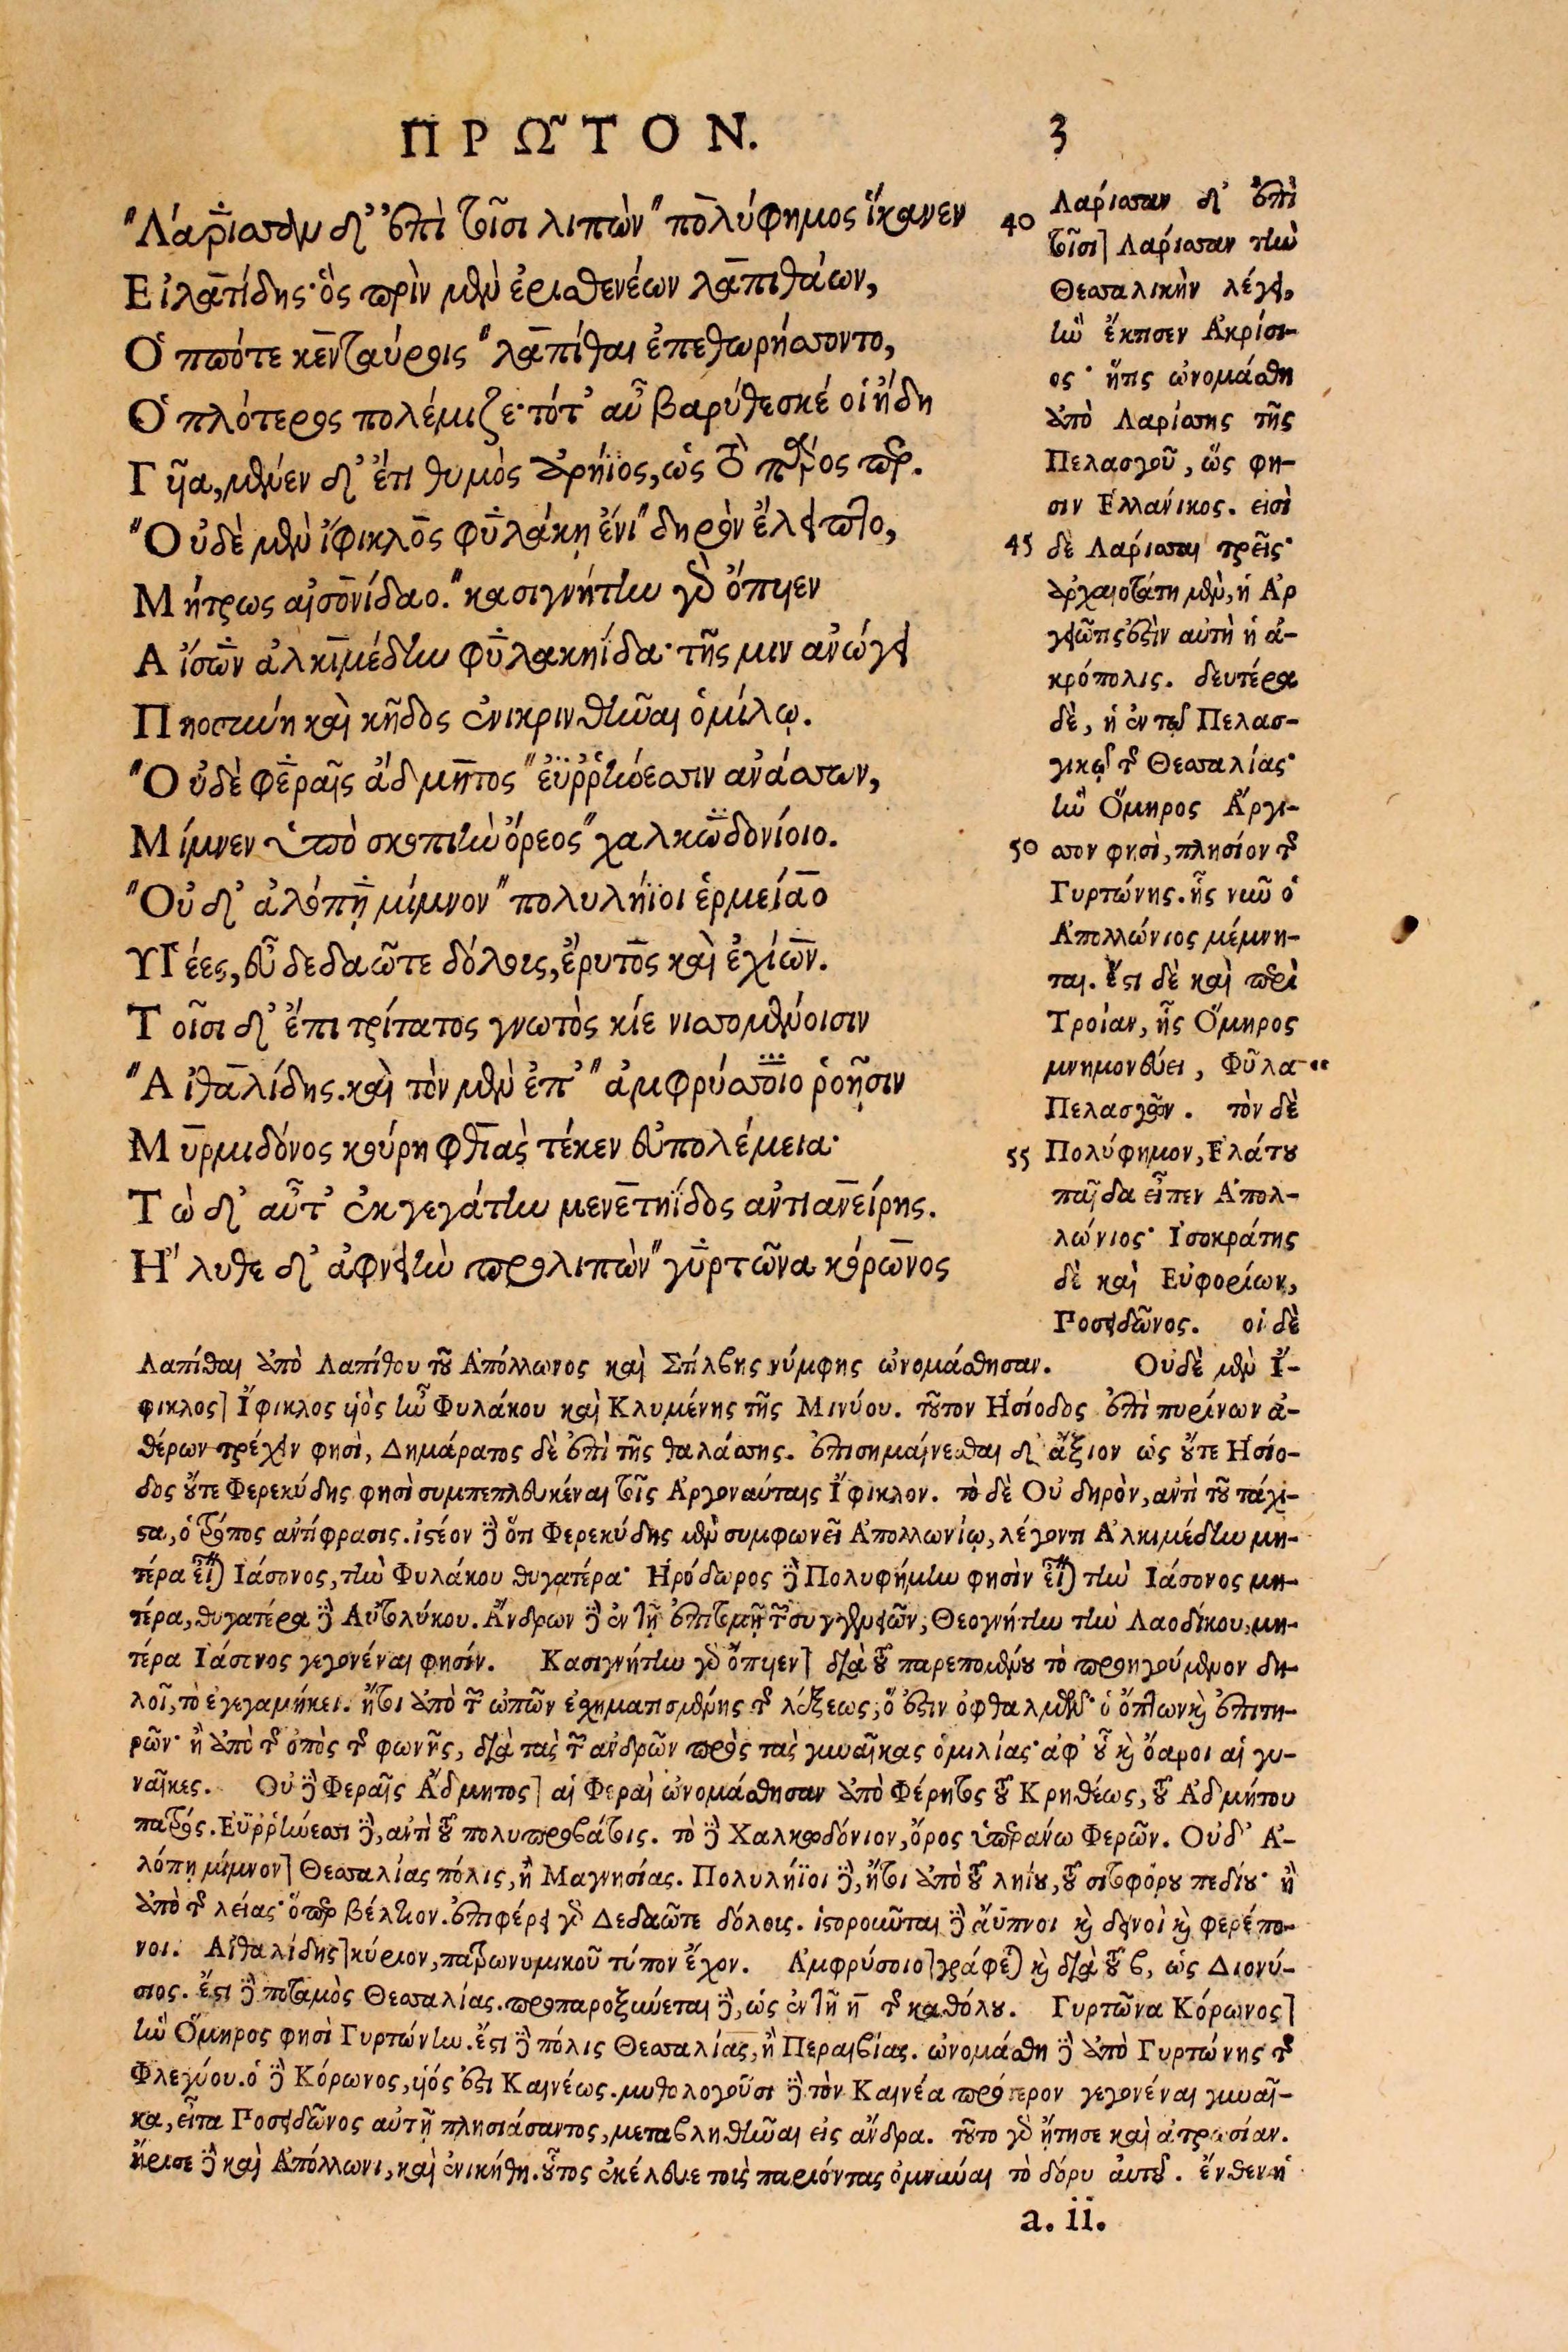 ΠΡΩ͂ΤΟΝ. 3
"Λάρισσαν δ' ἐπὶ τοῖσι λιπὼν "πολύφημος ἵκανεν
Εἰλατίδης· ὃς πρὶν μὲν ἐρισθενέων λαπιθάων,
Ὁππότε κενταύροις "λαπίθαι ἐπεθωρήσσοντο,
Ὁπλότερος πολέμιζε· τότ' αὖ βαρύθεσκέ οἱ ἤδη
Γυῖα, μένεν δ' ἔτι θυμὸς ἀρήϊος, ὡς τὸ πάρος περ.
"Οὐδὲ μὲν ἴφικλος φυλάκῃ ἔνι "δηρὸν ἔλειπτο,
Μήτρως αἰσονίδαο. "κασιγνήτην γὰρ ὄπυιεν
Αἴσων ἀλκιμέδην φυλακηΐδα· τῆς μιν ἀνώγει
Πηοσύνη καὶ κῆδος ἐνικρινθῆναι ὁμίλῳ.
"Οὐδὲ φεραῖς ἄδμητος "ἐϋῤῥήνεσσιν ἀνάσσων,
Μίμνεν ὑπὸ σκοπιὴν ὄρεος "χαλκωδονίοιο.
"Οὐδ' ἀλόπῃ μίμνον "πολυλήϊοι ἑρμείαο
Υἱέες, εὖ δεδαῶτε δόλοις, ἔρυτος καὶ ἐχίων.
Τοῖσι δ' ἔπι τρίτατος γνωτὸς κίε νισσομένοισιν
"Αἰθαλίδης. καὶ τὸν μὲν ἐπ' "ἀμφρυσσοῖο ῥοῇσιν
Μυρμιδόνος κούρη φθιὰς τέκεν εὐπολέμεια·
Τὼ δ' αὖτ' ἐκγεγάτην μενετηΐδος ἀντιανείρης.
Ἤλυθε δ' ἀφνειὴν προλιπὼν "γυρτῶνα κόρωνος
40
45
50
55
Λαρίσσαν δ' ἐπὶ
τοῖσι] Λαρίσσαν τὴν
Θεσσαλικὴν λέγει,
ἣν ἔκτισεν Ἀκρίσι-
ος· ἥτις ὠνομάσθη
ἀπὸ Λαρίσσης τῆς
Πελασγοῦ, ὥς φη-
σιν Ἑλλάνικος. εἰσὶ
δὲ Λαρίσσαι τρεῖς·
ἀρχαιοτάτη μὲν, ἡ Ἀρ
γείων τις ἐστὶν αὐτὴ ἡ ἀ-
κρόπολις. δευτέρα
δὲ, ἡ ἐν τῷ Πελασ-
γικῷ τῆς Θεσσαλίας·
ἣν Ὅμηρος Ἄργι-
σσον φησὶ, πλησίον τῆς
Γυρτώνης. ἧς νῦν ὁ
Ἀπολλώνιος μέμνη-
ται. ἔστι δὲ καὶ περὶ
Τροίαν, ἧς Ὅμηρος
μνημονεύει, Φῦλα "
Πελασγῶν. τὸν δὲ
Πολύφημον, Ἐλάτου
παῖδα εἶπεν Ἀπολ-
λώνιος· Ἰσοκράτης
δὲ καὶ Εὐφορίων,
Ποσειδῶνος. οἱ δὲ
Λαπίθαι ἀπὸ Λαπίθου τοῦ Ἀπόλλωνος καὶ Στίλβης νύμφης ὠνομάσθησαν. Οὐδὲ μὲν Ἴ-
φικλος] Ἴφικλος υἱὸς ἦν Φυλάκου καὶ Κλυμένης τῆς Μινύου. τοῦτον Ἡσίοδος ἐπὶ πυρίνων ἀ-
θέρων τρέχειν φησὶ, Δημάρατος δὲ ἐπὶ τῆς θαλάσσης. ἐπισημαίνεσθαι δ' ἄξιον ὡς οὔτε Ἡσίο-
δος οὔτε Φερεκύδης φησὶ συμπεπλευκέναι τοῖς Ἀργοναύταις Ἴφικλον. τὸ δὲ Οὐ δηρὸν, ἀντὶ τοῦ τάχι-
στα, ὁ τρόπος ἀντίφρασις. ἰστέον δὲ ὅτι Φερεκύδης μὲν συμφωνεῖ Ἀπολλωνίῳ, λέγοντι Ἀλκιμέδην μη-
τέρα εἶναι Ἰάσονος, τὴν Φυλάκου θυγατέρα· Ἡρόδωρος δὲ Πολυφήμην φησὶν εἶναι τὴν Ἰάσονος μη-
τέρα, θυγατέρα δὲ Αὐτολύκου. Ἄνδρων δὲ ἐν τῇ ἐπιτομῇ τῶν συγγενειῶν, Θεογνήτην τὴν Λαοδίκου, μη-
τέρα Ἰάσονος γεγονέναι φησίν. Κασιγνήτην γὰρ ὄπυιεν] διὰ τοῦ παρεπομένου τὸ προηγούμενον δη-
λοῖ, τὸ ἐγεγαμήκει. ἤτοι ἀπὸ τῶν ὠπῶν ἐσχηματισμένης τῆς λέξεως, ὅ ἐστιν ὀφθαλμῶν· ὁ ὄπτων καὶ ἐπιτη-
ρῶν· ἢ ἀπὸ τῆς ὀπὸς τῆς φωνῆς, διὰ τὰς τῶν ἀνδρῶν πρὸς τὰς γυναῖκας ὁμιλίας· ἀφ' οὗ καὶ ὄαροι αἱ γυ-
ναῖκες. Οὐ δὲ Φεραῖς Ἄδμητος] αἱ Φεραὶ ὠνομάσθησαν ἀπὸ Φέρητος τοῦ Κρηθέως, τοῦ Ἀδμήτου
πατρός. Εὐῤῥήνεσσι δὲ, ἀντὶ τοῦ πολυπροβάτοις. τὸ δὲ Χαλκωδόνιον, ὄρος ὑπεράνω Φερῶν. Οὐδ' Ἀ-
λόπῃ μίμνον] Θεσσαλίας πόλις, ἢ Μαγνησίας. Πολυλήϊοι δὲ, ἤτοι ἀπὸ τοῦ ληίου, τοῦ σιτοφόρου πεδίου· ἢ
ἀπὸ τῆς λείας· ὅπερ βέλτιον. ἐπιφέρει γὰρ Δεδαῶτε δόλοις. ἱστοροῦνται δὲ ἄϋπνοι καὶ δεινοὶ καὶ φερέπο-
νοι. Αἰθαλίδης] κύριον, πατρωνυμικοῦ τύπον ἔχον. Ἀμφρύσοιο] γράφεται καὶ διὰ τοῦ β, ὡς Διονύ-
σιος. ἔστι δὲ ποταμὸς Θεσσαλίας. προπαροξύνεται δὲ, ὡς ἐν τῇ η τῆς καθόλου. Γυρτῶνα Κόρωνος]
ἣν Ὅμηρος φησὶ Γυρτώνην. ἔστι δὲ πόλις Θεσσαλίας, ἢ Περαιβίας. ὠνομάσθη δὲ ἀπὸ Γυρτώνης τῆς
Φλεγύου. ὁ δὲ Κόρωνος, υἱός ἐστι Καινέως. μυθολογοῦσι δὲ τὸν Καινέα πρότερον γεγονέναι γυναῖ-
κα, εἶτα Ποσειδῶνος αὐτῇ πλησιάσαντος, μεταβληθῆναι εἰς ἄνδρα. τοῦτο γὰρ ᾔτησε καὶ ἀτρωσίαν.
ἤρισε δὲ καὶ Ἀπόλλωνι, καὶ ἐνικήθη. οὗτος ἐκέλευε τοὺς παριόντας ὀμνύναι τὸ δόρυ αὐτοῦ. ἔνθεν ἡ
a. ii.